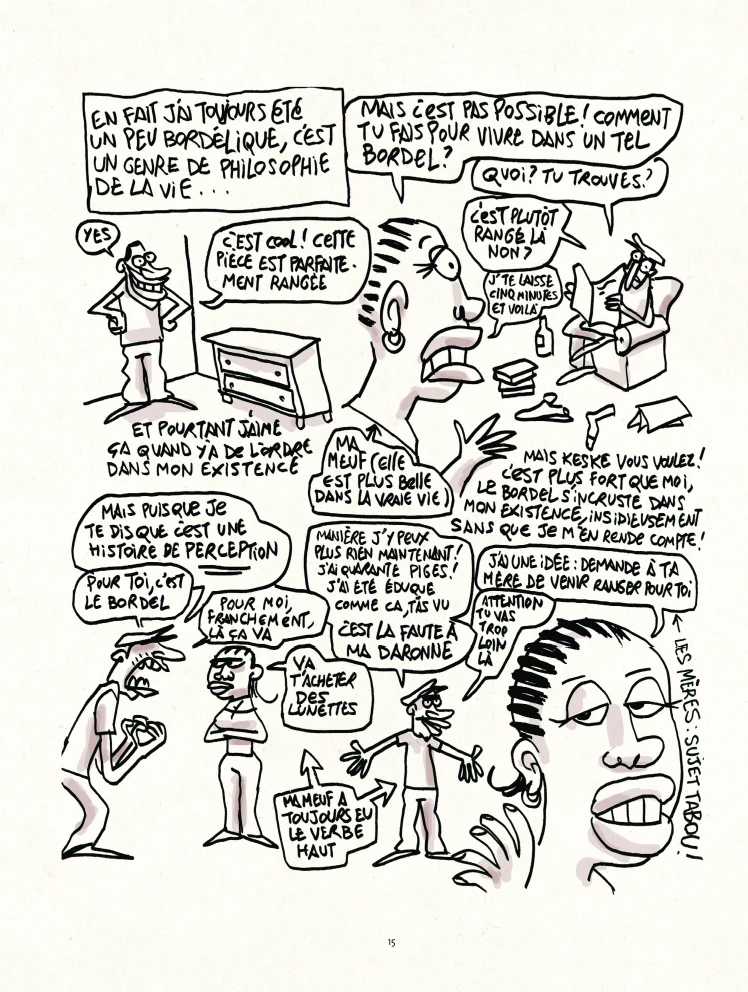 EN FAIT J'AI TOUJOURS ÉTÉ
UN PEU BORDÉLIQUE, C'EST
UN GENRE DE PHILOSOPHIE
DE LA VIE...
MAIS C'EST PAS POSSIBLE! COMMENT
TU FAIS POUR VIVRE DANS UN TEL
BORDEL?
QUOI? TU TROUVES?
C'EST PLUTÔT
RANGÉ LÀ
NON?
J'TE LAISSE
CINQ MINUTES
ET VOILÀ
YES
C'EST COOL! CETTE
PIÈCE EST PARFAITE-
MENT RANGÉE
ET POURTANT J'AIME
ÇA QUAND Y'A DE L'ORDRE
DANS MON EXISTENCE
MA
MEUF (ELLE
EST PLUS BELLE
DANS LA VRAIE VIE)
MAIS KESKE VOUS VOULEZ!
C'EST PLUS FORT QUE MOI,
LE BORDEL S'INCRUSTE DANS
MON EXISTENCE, INSIDIEUSEMENT
SANS QUE JE M'EN RENDE COMPTE!
MAIS PUISQUE JE
TE DIS QUE C'EST UNE
HISTOIRE DE PERCEPTION
POUR TOI, C'EST
LE BORDEL
POUR MOI,
FRANCHEMENT,
LÀ ÇA VA
VA
T'ACHETER
DES
LUNETTES
MANIÈRE J'Y PEUX
PLUS RIEN MAINTENANT!
J'AI QUARANTE PIGES!
J'AI ÉTÉ ÉDUQUÉ
COMME CA, T'AS VU
C'EST LA FAUTE À
MA DARONNE
J'AI UNE IDÉE: DEMANDE À TA
MÈRE DE VENIR RANGER POUR TOI
ATTENTION
TU VAS
TROP
LOIN
LÀ
MA MEUF A
TOUJOURS EU
LE VERBE
HAUT
LES MÈRES: SUJET TABOU!
15